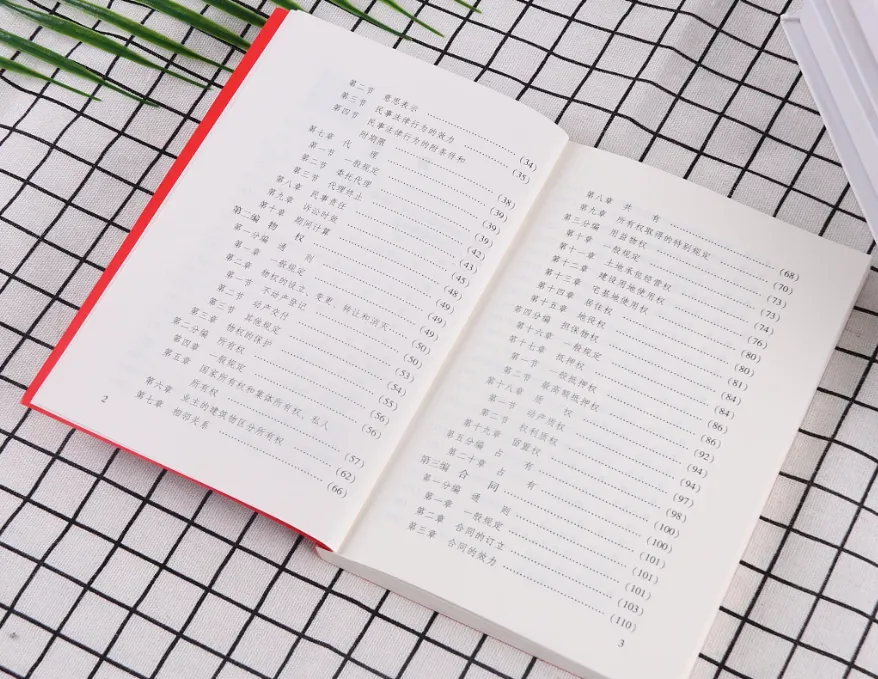 第二节 意思表示 …… (34)
第三节 民事法律行为的效力 …… (35)
第四节 民事法律行为的附条件和
附期限 …… (38)
第七章 代 理 …… (39)
第一节 一般规定 …… (39)
第二节 委托代理 …… (39)
第三节 代理终止 …… (42)
第八章 民事责任 …… (43)
第九章 诉讼时效 …… (45)
第十章 期间计算 …… (48)
第二编 物 权 …… (49)
第一分编 通 则 …… (49)
第一章 一般规定 …… (49)
第二章 物权的设立、变更、转让和消灭 …… (50)
第一节 不动产登记 …… (50)
第二节 动产交付 …… (53)
第三节 其他规定 …… (54)
第三章 物权的保护 …… (55)
第二分编 所有权 …… (56)
第四章 一般规定 …… (56)
第五章 国家所有权和集体所有权、私人
所有权 …… (57)
第六章 业主的建筑物区分所有权 …… (62)
第七章 相邻关系 …… (66)
2
第八章 共 有 …… (68)
第九章 所有权取得的特别规定 …… (70)
第三分编 用益物权 …… (73)
第十章 一般规定 …… (73)
第十一章 土地承包经营权 …… (74)
第十二章 建设用地使用权 …… (76)
第十三章 宅基地使用权 …… (80)
第十四章 居住权 …… (80)
第十五章 地役权 …… (81)
第四分编 担保物权 …… (84)
第十六章 一般规定 …… (84)
第十七章 抵押权 …… (86)
第一节 一般抵押权 …… (86)
第二节 最高额抵押权 …… (92)
第十八章 质 权 …… (94)
第一节 动产质权 …… (94)
第二节 权利质权 …… (97)
第十九章 留置权 …… (98)
第五分编 占 有 …… (100)
第二十章 占 有 …… (100)
第三编 合 同 …… (101)
第一分编 通 则 …… (101)
第一章 一般规定 …… (101)
第二章 合同的订立 …… (103)
第三章 合同的效力 …… (110)
3